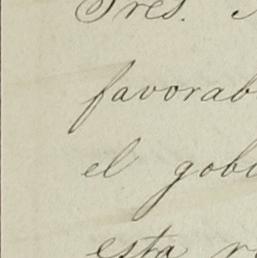 Sres.
favorab
el gobi
esta